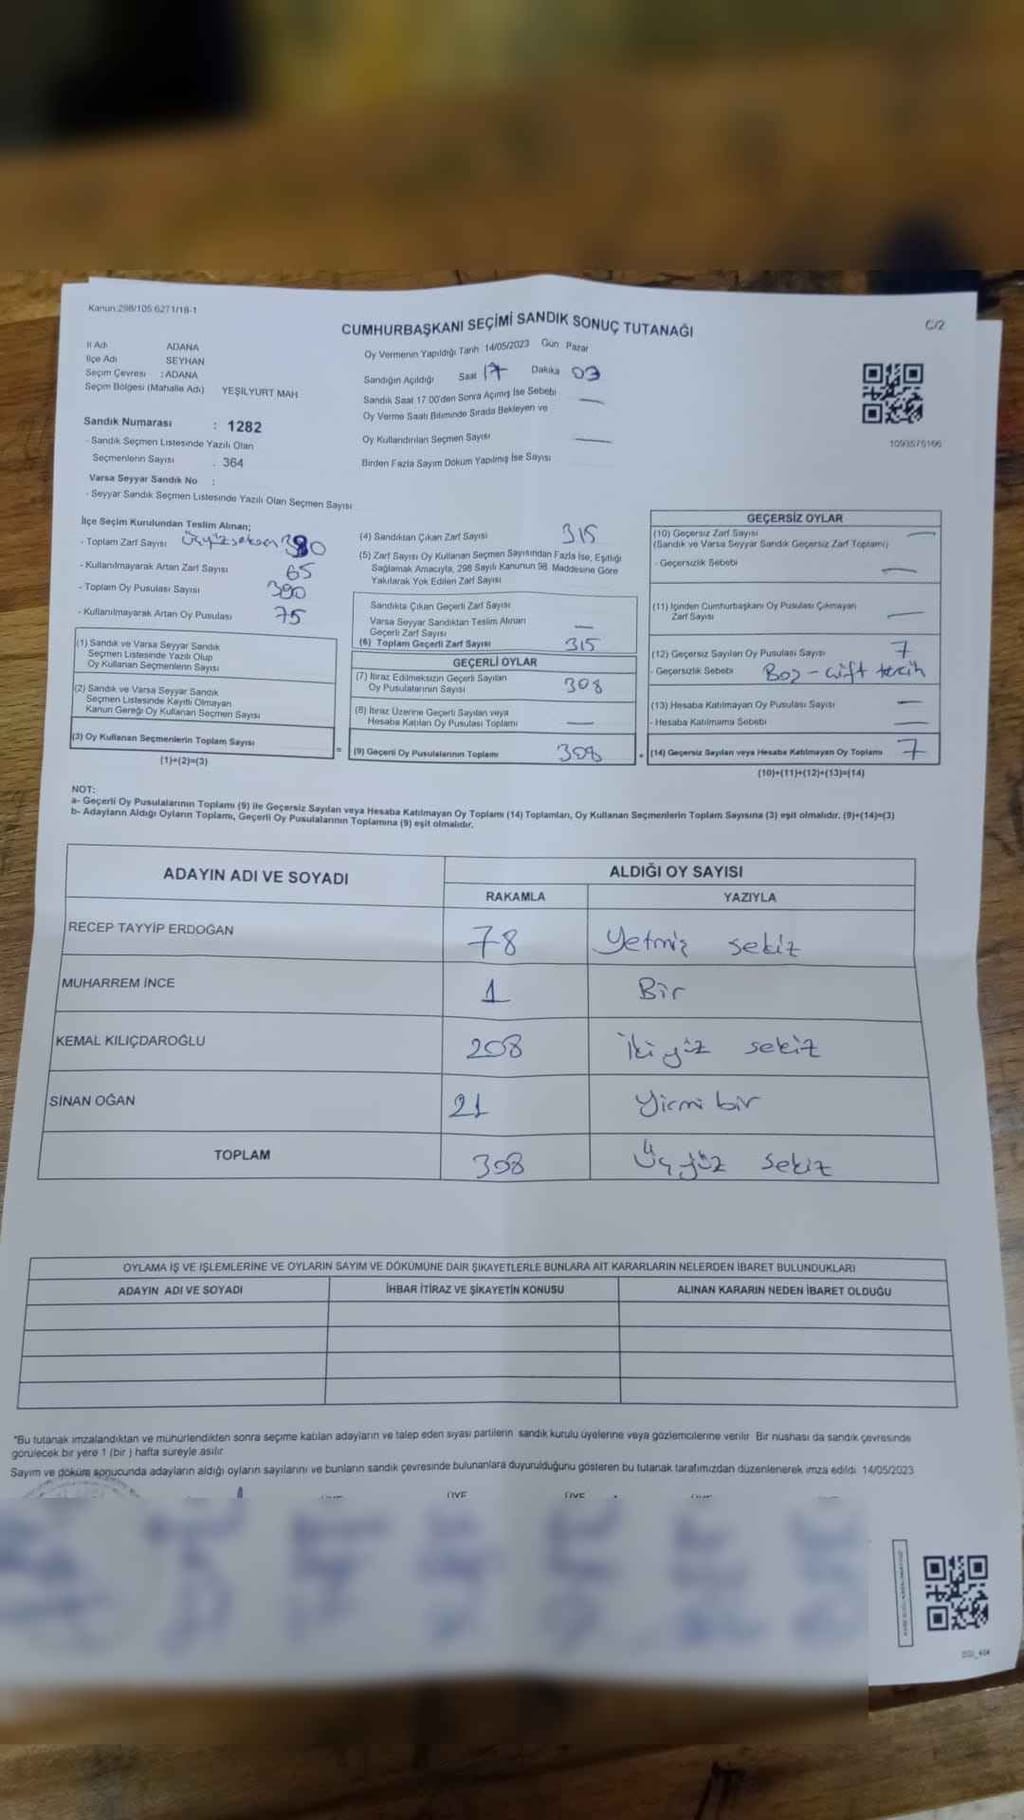 Kanun:298/105 6271/18-1
CUMHURBAŞKANI SEÇİMİ SANDIK SONUÇ TUTANAĞI
C/2
İl Adı ADANA
İlçe Adı SEYHAN
Seçim Çevresi : ADANA
Seçim Bölgesi (Mahalle Adı) YEŞİLYURT MAH
Oy Vermenin Yapıldığı Tarih 14/05/2023 Gün Pazar
Sandığın Açıldığı Saat 17 Dakika 03
Sandık Saat 17:00'den Sonra Açımış İse Sebebi —
Oy Verme Saati Bitiminde Sırada Bekleyen ve
Oy Kullandırılan Seçmen Sayısı —
Birden Fazla Sayım Döküm Yapılmış İse Sayısı
1093576166
Sandık Numarası : 1282
- Sandık Seçmen Listesinde Yazılı Olan
Seçmenlerin Sayısı : 364
Varsa Seyyar Sandık No :
- Seyyar Sandık Seçmen Listesinde Yazılı Olan Seçmen Sayısı
İlçe Seçim Kurulundan Teslim Alınan;
- Toplam Zarf Sayısı Üçyüzseksen 380
- Kullanılmayarak Artan Zarf Sayısı 65
- Toplam Oy Pusulası Sayısı 380
- Kullanılmayarak Artan Oy Pusulası 75
(1) Sandık ve Varsa Seyyar Sandık
Seçmen Listesinde Yazılı Olup
Oy Kullanan Seçmenlerin Sayısı
(2) Sandık ve Varsa Seyyar Sandık
Seçmen Listesinde Kayıtlı Olmayan
Kanun Gereği Oy Kullanan Seçmen Sayısı
(3) Oy Kullanan Seçmenlerin Toplam Sayısı
(1)+(2)=(3)
(4) Sandıktan Çıkan Zarf Sayısı 315
(5) Zarf Sayısı Oy Kullanan Seçmen Sayısından Fazla İse, Eşitliği
Sağlamak Amacıyla, 298 Sayılı Kanunun 98. Maddesine Göre
Yakılarak Yok Edilen Zarf Sayısı
Sandıkta Çıkan Geçerli Zarf Sayısı
Varsa Seyyar Sandıktan Teslim Alınan
Geçerli Zarf Sayısı —
(6) Toplam Geçerli Zarf Sayısı 315
GEÇERLİ OYLAR
(7) İtiraz Edilmeksizin Geçerli Sayılan
Oy Pusulalarının Sayısı 308
(8) İtiraz Üzerine Geçerli Sayılan veya
Hesaba Katılan Oy Pusulası Toplamı —
= (9) Geçerli Oy Pusulalarının Toplamı 308
GEÇERSİZ OYLAR
(10) Geçersiz Zarf Sayısı —
(Sandık ve Varsa Seyyar Sandık Geçersiz Zarf Toplamı)
- Geçersizlik Sebebi —
(11) İçinden Cumhurbaşkanı Oy Pusulası Çıkmayan
Zarf Sayısı —
(12) Geçersiz Sayılan Oy Pusulası Sayısı 7
- Geçersizlik Sebebi Boş - çift tercih
(13) Hesaba Katılmayan Oy Pusulası Sayısı —
- Hesaba Katılmama Sebebi —
+ (14) Geçersiz Sayılan veya Hesaba Katılmayan Oy Toplamı 7
(10)+(11)+(12)+(13)=(14)
NOT:
a- Geçerli Oy Pusulalarının Toplamı (9) ile Geçersiz Sayılan veya Hesaba Katılmayan Oy Toplamı (14) Toplamları, Oy Kullanan Seçmenlerin Toplam Sayısına (3) eşit olmalıdır. (9)+(14)=(3)
b- Adayların Aldığı Oyların Toplamı, Geçerli Oy Pusulalarının Toplamına (9) eşit olmalıdır.
ADAYIN ADI VE SOYADI ALDIĞI OY SAYISI
RAKAMLA YAZIYLA
RECEP TAYYİP ERDOĞAN 78 Yetmiş sekiz
MUHARREM İNCE 1 Bir
KEMAL KILIÇDAROĞLU 208 İki yüz sekiz
SİNAN OĞAN 21 Yirmi bir
TOPLAM 308 Üç yüz sekiz
OYLAMA İŞ VE İŞLEMLERİNE VE OYLARIN SAYIM VE DÖKÜMÜNE DAİR ŞİKAYETLERLE BUNLARA AİT KARARLARIN NELERDEN İBARET BULUNDUKLARI
ADAYIN ADI VE SOYADI İHBAR İTİRAZ VE ŞİKAYETİN KONUSU ALINAN KARARIN NEDEN İBARET OLDUĞU
*Bu tutanak imzalandıktan ve mühürlendikten sonra seçime katılan adayların ve talep eden siyasi partilerin sandık kurulu üyelerine veya gözlemcilerine verilir. Bir nüshası da sandık çevresinde
görülecek bir yere 1 (bir) hafta süreyle asılır.
Sayım ve döküm sonucunda adayların aldığı oyların sayılarını ve bunların sandık çevresinde bulunanlara duyurulduğunu gösteren bu tutanak tarafımızdan düzenlenerek imza edildi. 14/05/2023
ÜYE ÜYE